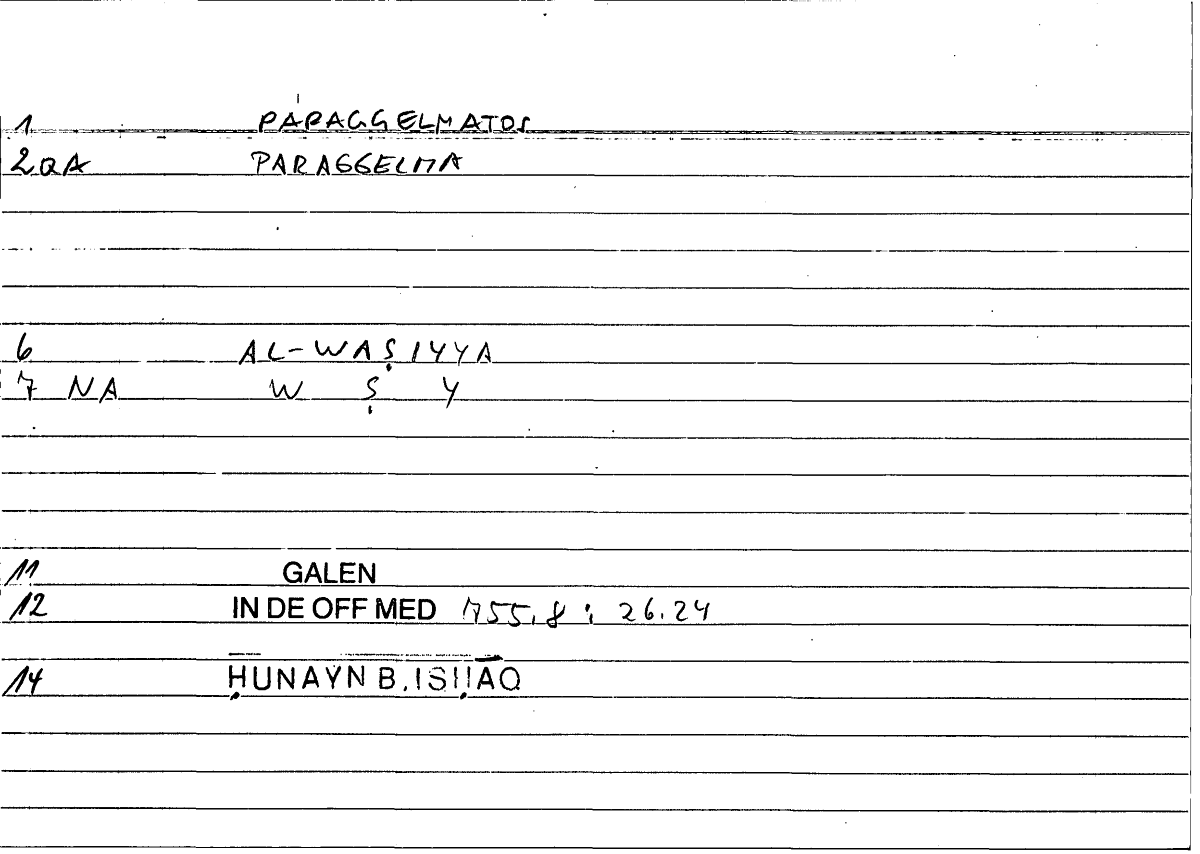 1 PAPAGGELMATOS
2QA PARAGGELMA
6 AL-WAṢIYYA
7 NA W Ṣ Y
11 GALEN
12 IN DE OFF MED 755,8 : 26.24
14 ḤUNAYN B. ISḤĀQ